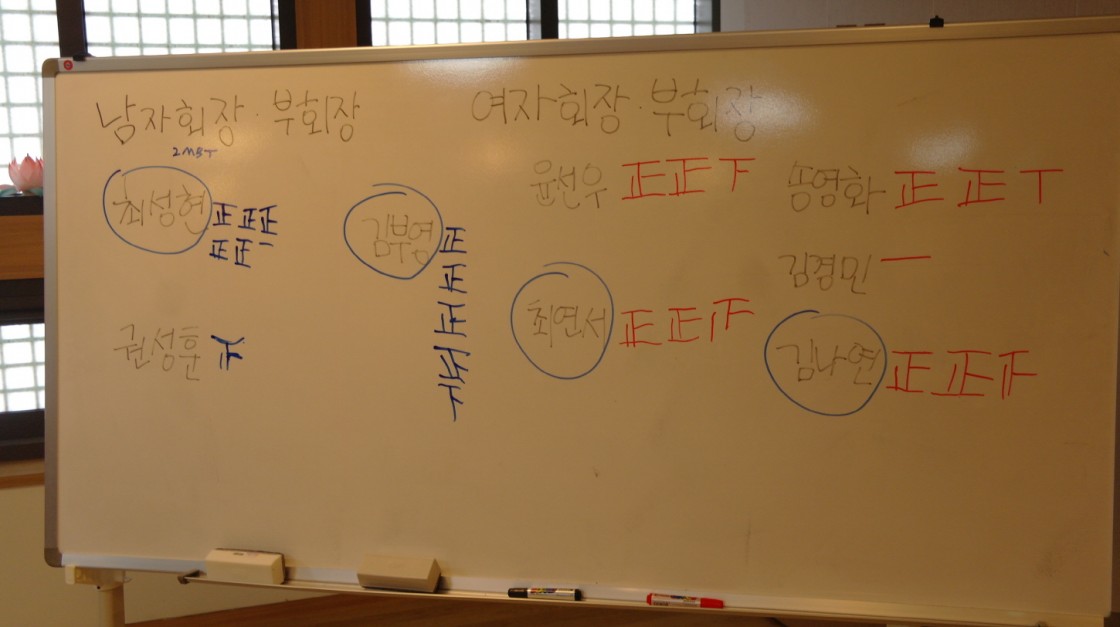 남자회장·부회장
2MB
최성현 正正正
正正一
김부영 正正正正
권성훈
여자회장·부회장
윤선우 正正下
최연서 正正
김경민 一
김나연 正正
영화 正正丅